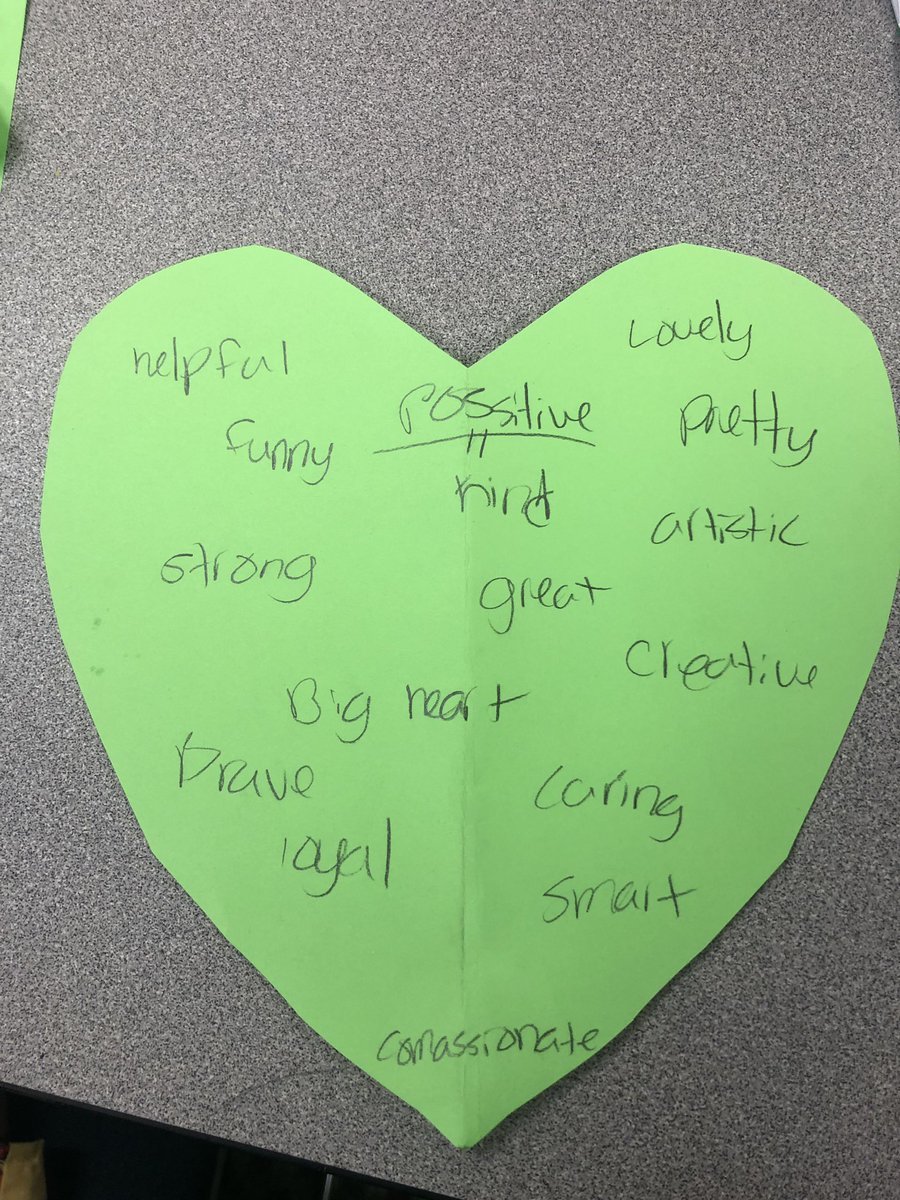 Lovely
helpful
possitive
pretty
funny
kind
artistic
strong
great
creative
Big heart
brave
caring
loyal
smart
comassionate